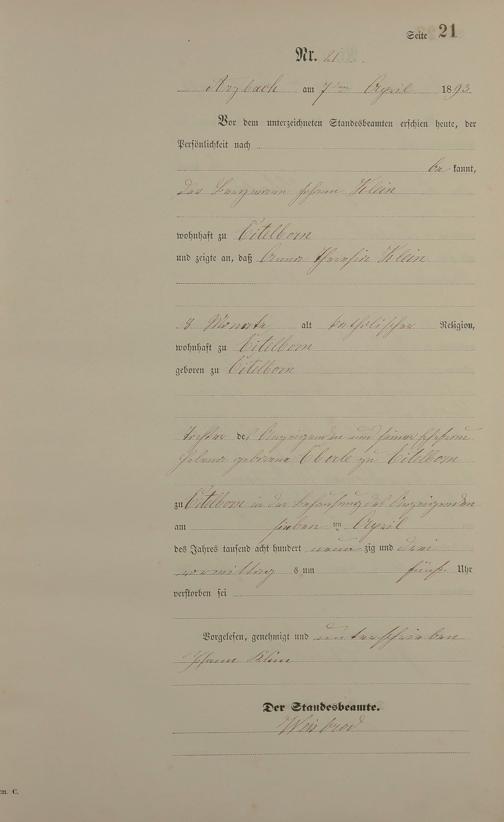 Seite 21
Nr. 21.
Arzbach am 7ten April 1893.
Vor dem unterzeichneten Standesbeamten erschien heute, der
Persönlichkeit nach
be kannt,
der Bergmann Johann Klein
wohnhaft zu Eitelborn
und zeigte an, daß Anna Theresia Klein
3 Monate, alt katholischer Religion,
wohnhaft zu Eitelborn
geboren zu Eitelborn
Tochter des Anzeigenden und seiner Ehefrau
geborene Eberle zu Eitelborn
zu Eitelborn in der Behausung des Anzeigenden
am sieben ten April
des Jahres tausend acht hundert neun zig und drei
vormittag s um fünf Uhr
verstorben sei
Vorgelesen, genehmigt und unterschrieben
Johann Klein
Der Standesbeamte.
Weisbrod
m. C.